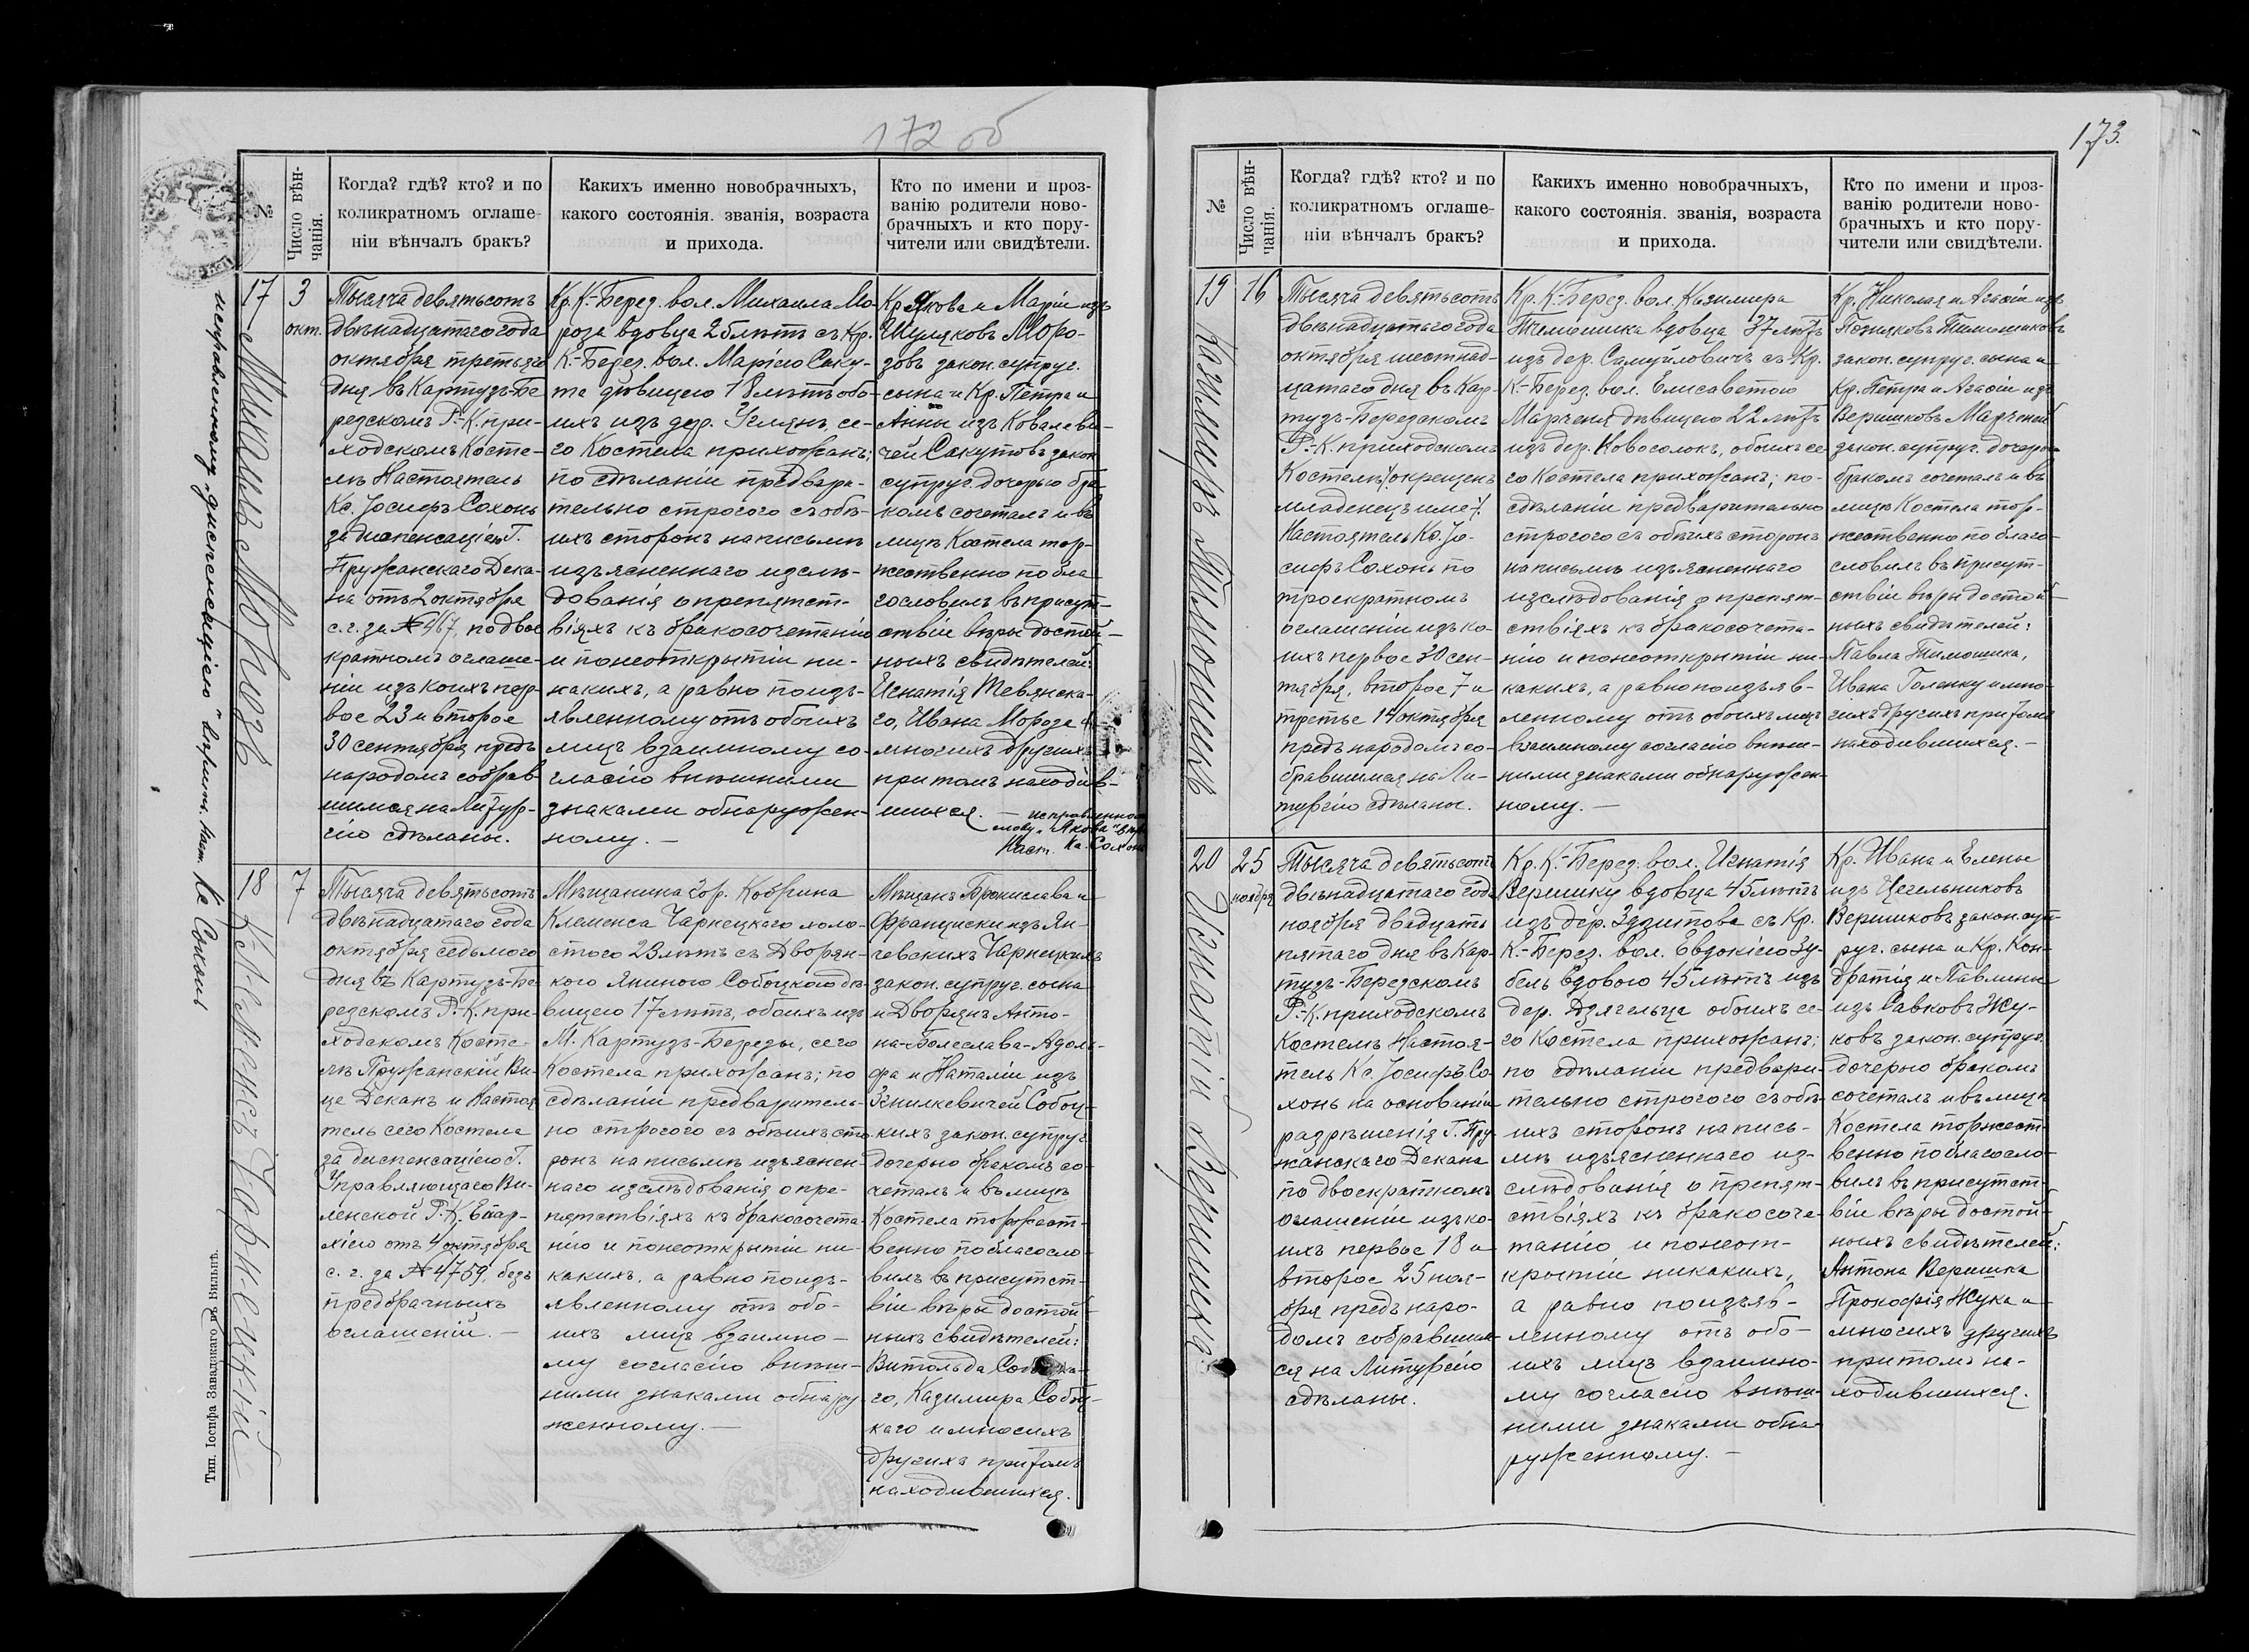 172 об
№
Число вѣн-
чанія.
Когда? гдѣ? кто? и по
коликратномъ оглаше-
ніи вѣнчалъ бракъ?
Какихъ именно новобрачныхъ,
какого состоянія. званія, возраста
и прихода.
Кто по имени и проз-
ванію родители ново-
брачныхъ и кто пору-
чители или свидѣтели.
17
Михаилъ Морозъ
3
окт.
Тысяча девятьсотъ
двѣнадцатаго года
октября третьяго
дня въ Картузъ-Бе
резскомъ Р.-К. при-
ходскомъ Косте-
лѣ Настоятель
Кс. Іосифъ Сохонь
за диспенсаціею Г.
Пружанскаго Дека-
на отъ 2 октября
с. г. за № 967, по двое
кратномъ оглаше-
ніи изъ коихъ пер-
вое 23 и второе
30 сентября предъ
народомъ собрав-
шимся на Литур-
гію сдѣланы.
Кр. К.-Берез. вол. Михаила Мо-
роза вдовца 25 лѣтъ съ Кр.
К.-Берез. вол. Маріею Саку-
та дѣвицею 18 лѣтъ обо-
ихъ изъ дер. Углянъ, се-
го Костела прихожанъ;
по сдѣланіи предвари-
тельно строгого съ обѣ-
ихъ сторонъ на письмѣ
изъясненнаго изслѣ-
дованія о препятст-
віяхъ къ бракосочетанію
и понеоткрытіи ни-
какихъ, а равно по изъ-
явленному отъ обоихъ
лицъ взаимному со-
гласію внѣшними
знаками обнаружен-
ному. —
Кр. Якова и Маріи изъ
Шуляковъ Моро-
зовъ закон. супруг.
сына и Кр. Петра и
Анны изъ Ковалеви-
чей Сакутовъ закон
супруг. дочерью бра-
комъ сочеталъ и въ
лицѣ Костела тор-
жественно побла-
гословилъ въ присут-
ствіи вѣры достой-
ныхъ свидѣтелей:
Игнатія Тевянска-
го, Ивана Мороза и
многихъ другихъ
при томъ находив-
шихся.
— исправленном
слову „Якова" вѣр
Наст. Кс. Сохонь
исправленному „диспенсаціею" вѣрить. Наст. Кс Сохонь
18
Клеменсъ Чарнецкій
7
Тысяча девятьсотъ
двѣнадцатаго года
октября седьмого
дня въ Картузъ-Бе
резскомъ Р.-К. при-
ходскомъ Косте-
лѣ Пружанскій Ви-
це Деканъ и Настоя
тель сего Костела
за диспенсаціею Г.
Управляющаго Ви-
ленской Р.-К. Епар-
хіею отъ 4 октября
с. г. за № 4759, безъ
предбрачныхъ
оглашеній. —
Мѣщанина гор. Кобрина
Клеменса Чарнецкаго холо-
стого 23 лѣтъ съ Дворян-
кою Яниною Собоцкою дѣ-
вицею 17 лѣтъ, обоихъ изъ
М. Картузъ-Березы, сего
Костела прихожанъ; по
сдѣланіи предваритель-
но строгого съ обѣихъ сто
ронъ на письмѣ изъяснен-
наго изслѣдованія о пре-
пятствіяхъ къ бракосочета-
нію и понеоткрытіи ни-
какихъ, а равно по изъ-
явленному отъ обо-
ихъ лицъ взаимно-
му согласію внѣш-
ними знаками обнару
женному. —
Мѣщанъ Бронислава и
Францишки изъ Ян-
чевскихъ Чарнецкихъ
закон. супруг. сына
и Дворянъ Анто-
на-Болеслава-Адоль-
фа и Наталіи изъ
Собоц-
кихъ закон. супруг.
дочерью бракомъ со-
четалъ и въ лицѣ
Костела торжест-
венно поблагосло-
вилъ въ присутст-
віи вѣры достой-
ныхъ свидѣтелей:
Витольда
го, Казимира Собоц-
каго и многихъ
другихъ при томъ
находившихся.
Тип. Іосифа Завадзкаго въ Вильнѣ.
173.
№
Число вѣн-
чанія.
Когда? гдѣ? кто? и по
коликратномъ оглаше-
ніи вѣнчалъ бракъ?
Какихъ именно новобрачныхъ,
какого состоянія. званія, возраста
и прихода.
Кто по имени и проз-
ванію родители ново-
брачныхъ и кто пору-
чители или свидѣтели.
19
Казимиръ Тимошикъ
16
Тысяча девятьсотъ
двѣнадцатаго года
октября шестнад-
цатаго дня въ Кар-
тузъ-Березскомъ
Р.-К. приходскомъ
Костелѣ /окрещенъ
младенецъ име/.
Настоятель Кс. Іо-
сифъ Сохонь по
троекратномъ
оглашеніи изъ ко-
ихъ первое 30 сен-
тября, второе 7 и
третье 14 октября
предъ народомъ со-
бравшимся на Ли-
тургію сдѣланы.
Кр. К.-Берез. вол. Казимира
Тимошика вдовца 37 лѣтъ
изъ дер. Самуйловичъ съ Кр.
К.-Берез. вол. Елисаветою
Марченя дѣвицею 22 лѣтъ
изъ дер. Новоселокъ, обоихъ се
го Костела прихожанъ; по-
сдѣланіи предварительно
строгого съ обѣихъ сторонъ
на письмѣ изъясненнаго
изслѣдованія о препят-
ствіяхъ къ бракосочета-
нію и понеоткрытіи ни-
какихъ, а равно по изъяв-
ленному отъ обоихъ лицъ
взаимному согласію внѣш-
ними знаками обнаружен-
ному. —
Кр. Николая и Агафіи изъ
Позняковъ Тимошиковъ
закон. супруг. сына и
Кр. Петра и Агафіи изъ
Веришковъ Марченей
закон. супруг. дочерью
бракомъ сочеталъ и въ
лицѣ Костела тор-
жественно поблаго-
словилъ въ присут-
ствіи вѣры достой-
ныхъ свидѣтелей:
Павла Тимошика,
Ивана Голенку и мно-
гихъ другихъ при томъ
находившихся. —
20
Игнатій Веришка
25
ноября
Тысяча девятьсотъ
двѣнадцатаго года
ноября двадцать
пятаго дня въ Кар-
тузъ-Березскомъ
Р.-К. приходскомъ
Костелѣ Настоя-
тель Кс. Іосифъ Со-
хонь на основаніи
разрѣшенія Г. Пру-
жанскаго Декана
по двоекратномъ
оглашеніи изъ ко-
ихъ первое 18 и
второе 25 ноя-
бря предъ наро-
домъ собравшим-
ся на Литургію
сдѣланы.
Кр. К.-Берез. вол. Игнатія
Веришку вдовца 45 лѣтъ
изъ дер. Здзитова съ Кр.
К.-Берез. вол. Евдокіею Зу-
бель вдовою 45 лѣтъ изъ
дер. Дзягельца обоихъ се-
го Костела прихожанъ;
по сдѣланіи предвари-
тельно строгого съ обѣ-
ихъ сторонъ на пись-
мѣ изъясненнаго из-
слѣдованія о препят-
ствіяхъ къ бракосоче-
танію и понеот-
крытіи никакихъ,
а равно по изъяв-
ленному отъ обо-
ихъ лицъ взаимно-
му согласію внѣш-
ними знаками обна-
руженному. —
Кр. Ивана и Елены
изъ Цегельниковъ
Веришковъ закон. суп-
руг. сына и Кр. Кон-
дратія и Павлины
изъ Савковъ Жу-
ковъ закон. супруг.
дочерью бракомъ
сочеталъ и въ лицѣ
Костела торжест-
венно поблагосло-
вилъ въ присутст-
віи вѣры достой-
ныхъ свидѣтелей:
Антона Веришка
Прокофія Жука и
многихъ другихъ
при томъ на-
ходившихся.